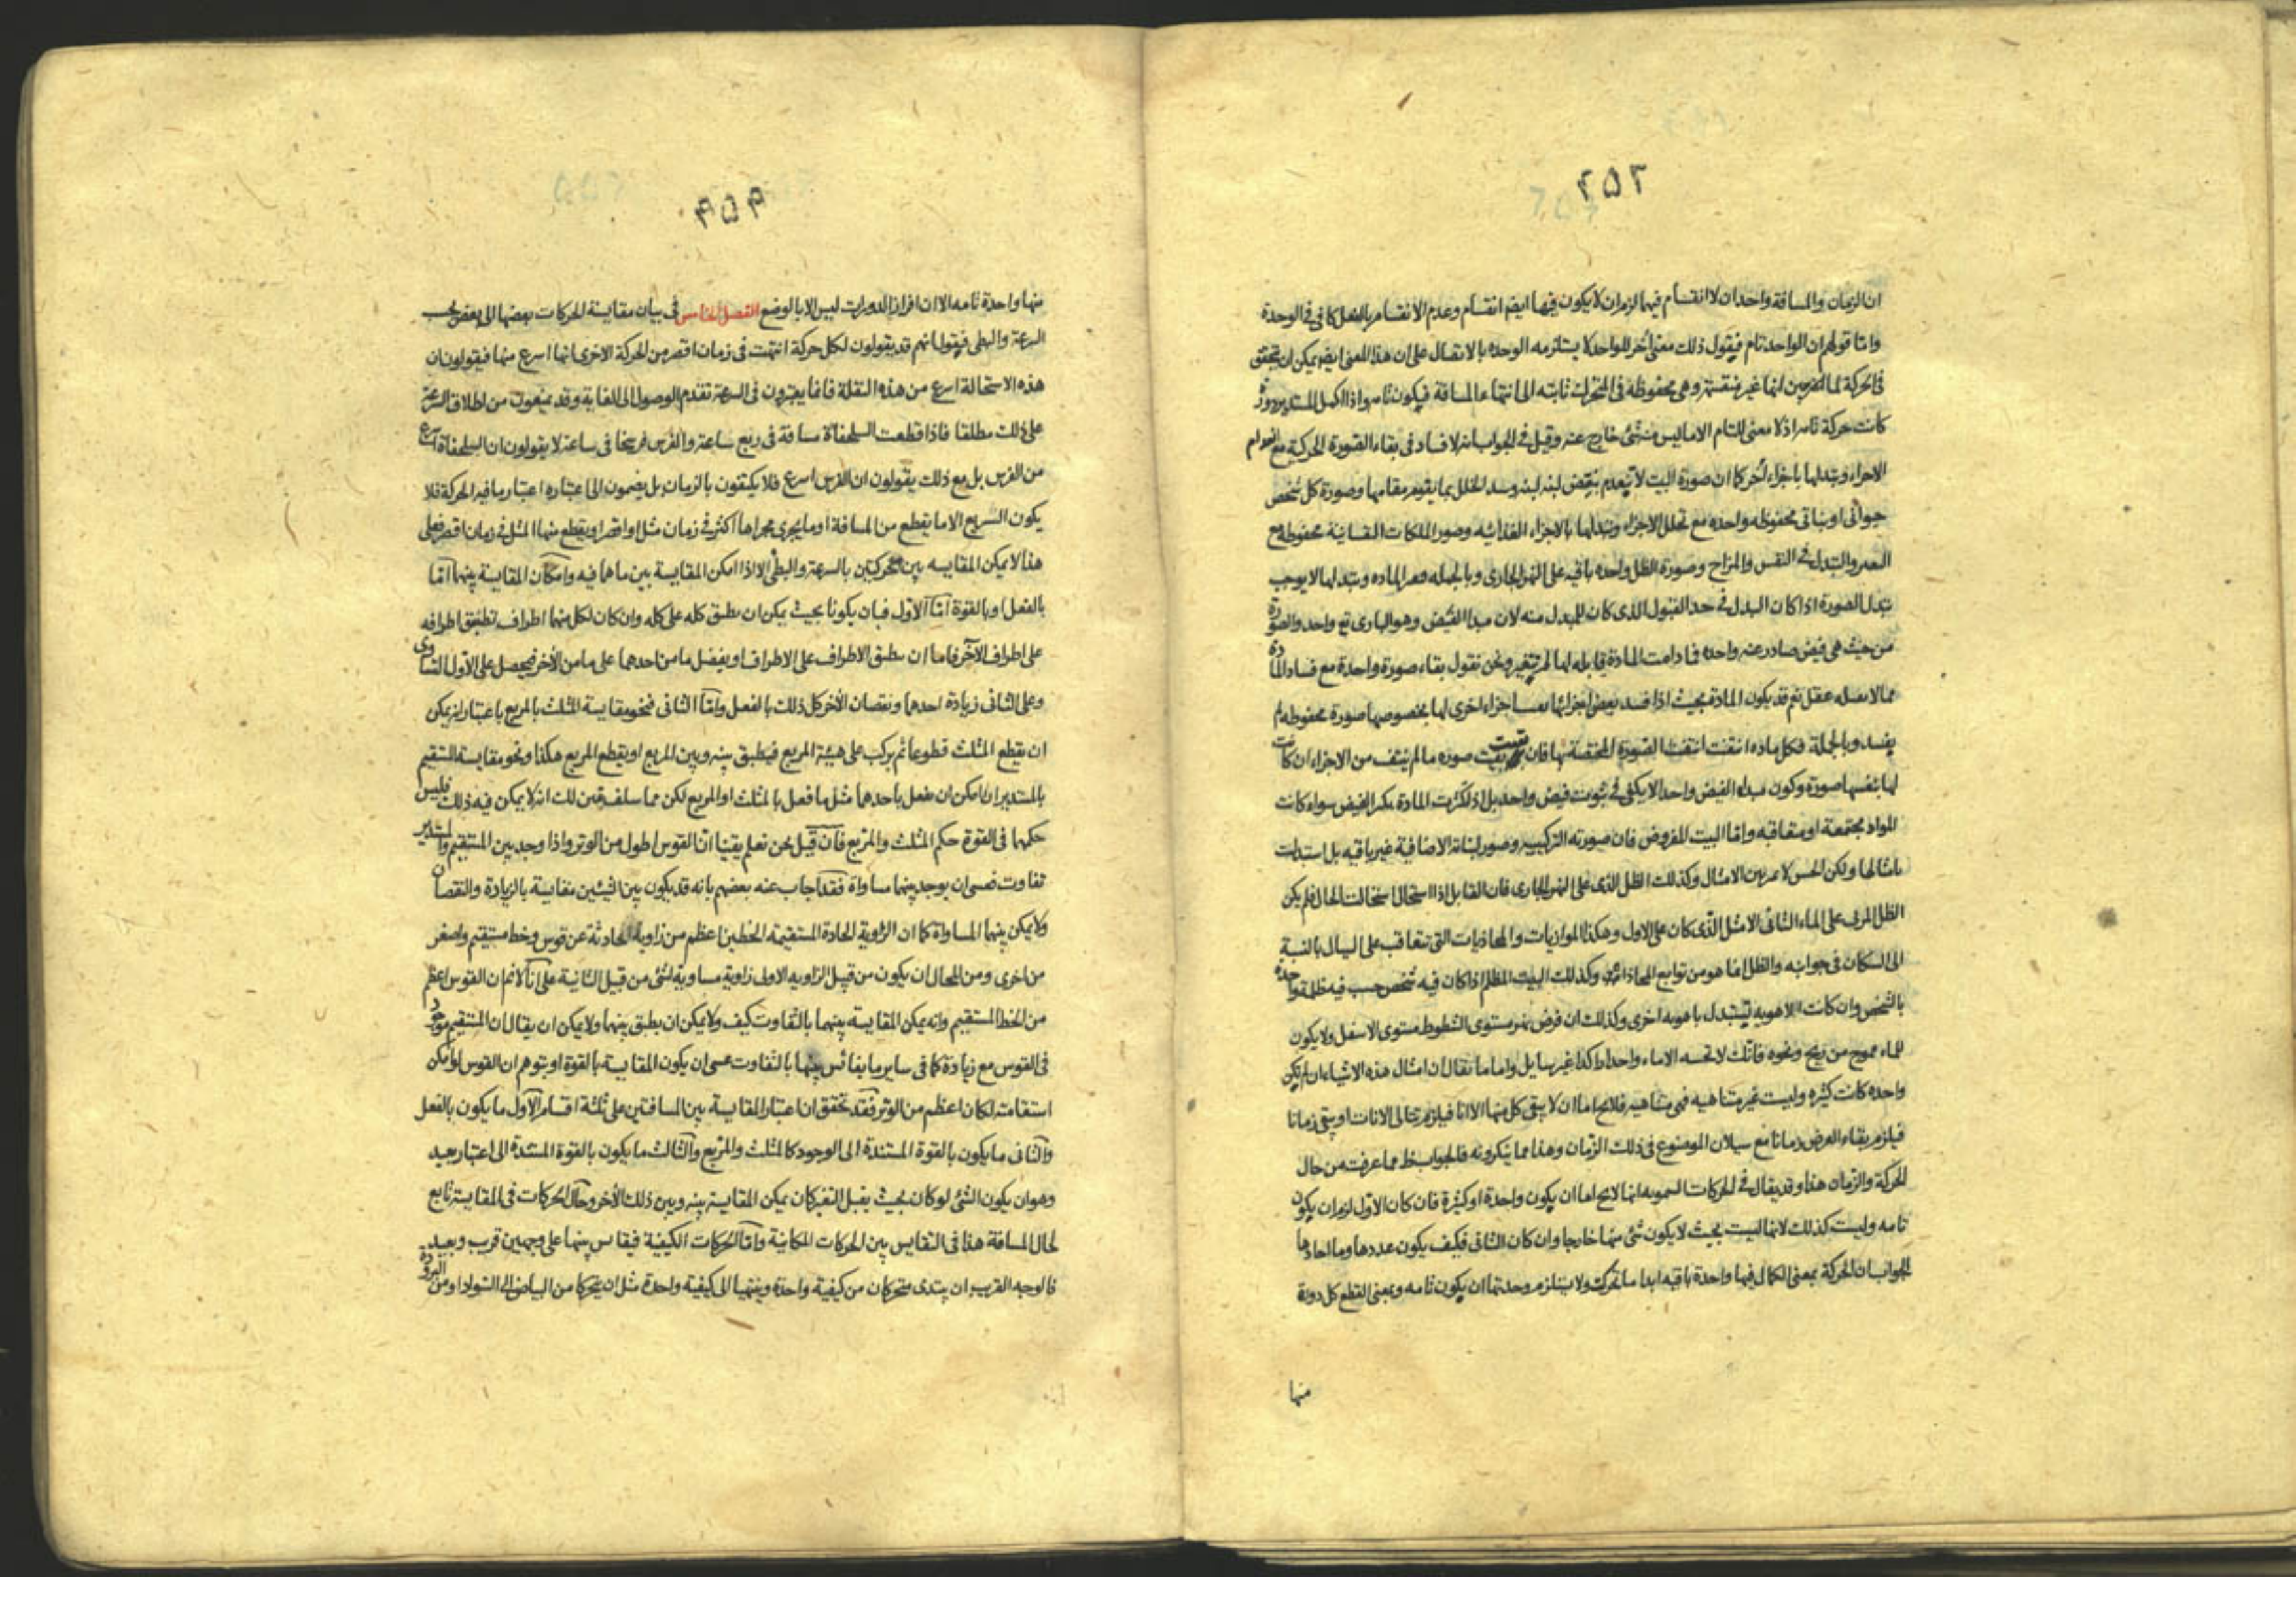 ۲۵۳
ان الزمان والمسافة واحدان لا انقسام فيهما لزم ان لا يكون فيها ايضا انقسام وعدم الانقسام بالفعل كافى فى الوحدة
واما قولهم ان الواحد تام فيقول ذلك معنى آخر للواحد لا يستلزمه الوحده بالاتصال على ان هذا المعنى ايضا يمكن ان يتحقق
فى الحركة لما انها غير منقسمة وهى محفوظه فى المتحرك ثابته الى انتهاء المسافة فيكون تامه واذا اكمل المستدير دورة
كانت حركة تامه اذ لا معنى للتام الا ما ليس منه شئ خارج عنه وقيل فى الجواب انه لا فساد فى بقاء الصورة الحركية مع انعدام
الاجزاء وتبدلها باجزاء اخر كما ان صورة البيت لا تنعدم بنقض لبنه لبنه وسد الخلل بما يقوم مقامها وصورة كل شخص
حيوانى او نباتى محفوظه واحده مع تحلل الاجزاء وتبدلها بالاجزاء الغذائيه وصور الملكات النفسانية محفوظة مع
التبدل فى النفس والمزاج وصورة الظل واحده باقيه على النهر الجارى وبالجمله المادة وتبدلها لا يوجب
تبدل الصورة اذا كان البدل فى حد القبول الذى كان للمبدل منه لان مبدا الفيض وهو البارى تع واحد والصورة
من حيث هى فيض صادر عنه واحده فما دامت المادة قابله لها لم تتغير ونحن نقول بقاء صورة واحدة مع فساد المادة
مما لا عقل نعم قد يكون المادة بحيث اذا فسد بعض اجزائها اجزاء اخرى لها بخصوصها صورة محفوظه لم
يفسد وبالجملة فكل ماده انتفت انتفت الصورة المختصة بها فان بقيت صوره ما لم ينتف من الاجزاء ان كانت
لها بنفسها صورة وكون مبداء الفيض واحد لا يكفى فى ثبوت فيض واحد بل اذ تكثرت المادة الفيض سواء كانت
المواد مجتمعة او متعاقبه واما البيت المفروض فان صورته التركيبيه وصور لبناته الاضافية غير باقيه بل استبدلت
بامثالها ولكن الحس لا بين الامثال وكذلك الظل الذى على النهر الجارى فان القابل اذا استحال استحالت الحال فلم يكن
الظل المرئى على الماء الثانى الا مثل الذى كان على الاول وهكذا الموازيات والمحاذيات التى تتعاقب على السيال بالنسبة
الى السكان فى جوانبه والظل انما هو من توابع المحاذاة وكذلك البيت المظلم اذا كان فيه شخص حسب فيه ظلمة واحدة
بالشخص وان كانت الاهويه تستبدل باهويه اخرى وكذلك ان فرض نهر مستوى الشطوط مستوى الاسفل ولا يكون
للماء تموج من ريح ونحوه فانك لا تحسه الا ماء واحدا غير سايل واما ما يقال ان امثال هذه الاشياء ان لم تكن
واحده كانت كثيره وليست غير متناهيه فهى متناهيه فلا يخ اما ان لا يبقى كل منها الا انا فيلزم تتالى الانات او يبقى زمانا
فيلزم بقاء العرض زمانا مع سيلان الموضوع فى ذلك الزمان وهذا مما ينكرونه فالجواب مما عرفت من حال
الحركة والزمان هذا وقد يقال فى الحركات السمويه انها لا يخ اما ان يكون واحدة او كثيرة فان كان الاول لزم ان يكون
تامه وليست كذلك لانها ليست بحيث لا يكون شئ منها خارجا وان كان الثانى فكيف يكون عددها وما احادها
الجواب ان الحركة بمعنى الكمال فيها واحدة باقيه ابدا ما تحركت ولا يستلزم وحدتها ان يكون تامه وبمعنى القطع كل دورة
منها
۴۵۴
منها واحدة تامه الا ان افراز الدورات ليس الا بالوضع الفصل الخامس فى بيان مقايسة الحركات بعضها الى بعض بحسب
السرعة والبطئ فيقول انهم قد يقولون لكل حركة انتهت فى زمان اقصر من الحركة الاخرى انها اسرع منها فيقولون ان
هذه الاستحالة اسرع من هذه النقلة فانما يعتبرون فى السرعة تقدم الوصول الى الغاية وقد يمنعون من اطلاق السرعة
على ذلك مطلقا فاذا قطعت السلحفاة مسافة فى ربع ساعة والفرس فرسخا فى ساعة لا يقولون ان السلحفاة اسرع
من الفرس بل مع ذلك يقولون ان الفرس اسرع فلا يكتفون بالزمان بل يضمون الى اعتباره اعتبار ما فيه الحركة فلا
يكون السريع الا ما يقطع من المسافة او ما يجرى مجراها اكثر فى زمان مثل او اقصر او يقطع منها المثل فى زمان اقصر فعلى
هذا لا يمكن المقايسه بين متحركين بالسرعة والبطئ الا اذا امكن المقايسة بين ما هما فيه وامكان المقايسة بينهما اما
بالفعل او بالقوة اما الاول فبان يكونا بحيث يمكن ان يطبق كله على كله وان كان لكل منهما اطراف تطبق اطرافه
على اطراف الآخر فاما ان يطبق الاطراف على الاطراف او يفضل ما من احدهما على ما من الاخر فيحصل على الاول التساوى
وعلى الثانى زيادة احدهما ونقصان الاخر كل ذلك بالفعل واما الثانى فنحو مقايسة المثلث بالمربع باعتبار انه يمكن
ان يقطع المثلث قطوعا ثم يركب على هيئة المربع فيطبق بينه وبين المربع او يقطع المربع هكذا ونحو مقايسة المستقيم
بالمستدير ان امكن ان يفعل باحدهما مثل ما فعل بالمثلث او المربع لكن مما سلف تبين لك انه لا يمكن فيه ذلك فليس
حكمها فى القوة حكم المثلث والمربع فان قيل نحن نعلم يقينا ان القوس اطول من الوتر واذا وجد بين المستقيم والمستدير
تفاوت فعسى ان يوجد بينهما مساواة فقد اجاب عنه بعضهم بانه قد يكون بين الشيئين مقايسة بالزيادة والنقصان
ولا يمكن بينهما المساواة كما ان الزاوية الحادة المستقيمة الخطين اعظم من زاوية الحادثة عن قوس وخط مستقيم واصغر
من اخرى ومن المحال ان يكون من قبيل الزاويه الاولى زاوية مساوية لشئ من قبيل الثانية على انا لا نم ان القوس اعظم
من الخط المستقيم وانه يمكن المقايسة بينهما بالتفاوت كيف ولا يمكن ان يطبق بينهما ولا يمكن ان يقال ان المستقيم موجود
فى القوس مع زيادة كما فى ساير ما يقائس بينها بالتفاوت عسى ان يكون المقايسة بالقوة او بتوهم ان القوس لو امكن
استقامته لكان اعظم من الوتر فقد تحقق ان اعتبار المقايسة بين المسافتين على ثلثة اقسام الاول ما يكون بالفعل
والثانى ما يكون بالقوة المستندة الى الوجود كالمثلث والمربع والثالث ما يكون بالقوة المستندة الى اعتبار بعيد
وهو ان يكون الشئ لو كان بحيث يقبل التغير كان يمكن المقايسة بينه وبين ذلك الاخر وحال الحركات فى المقايسة تابع
لحال المسافة هذا فى التقايس بين الحركات المكانية واما الحركات الكيفية فيقاس بينها على وجهين قريب وبعيد
فالوجه القريب ان يبتدى متحركان من كيفية واحدة وينتهيا الى كيفية واحدة مثل ان يتحركا من البياض الى السواد او من البرودة